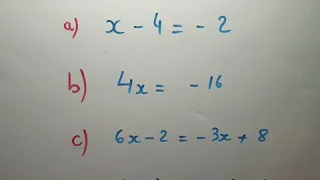 a) x - 4 = - 2
b) 4x = - 16
c) 6x - 2 = - 3x + 8